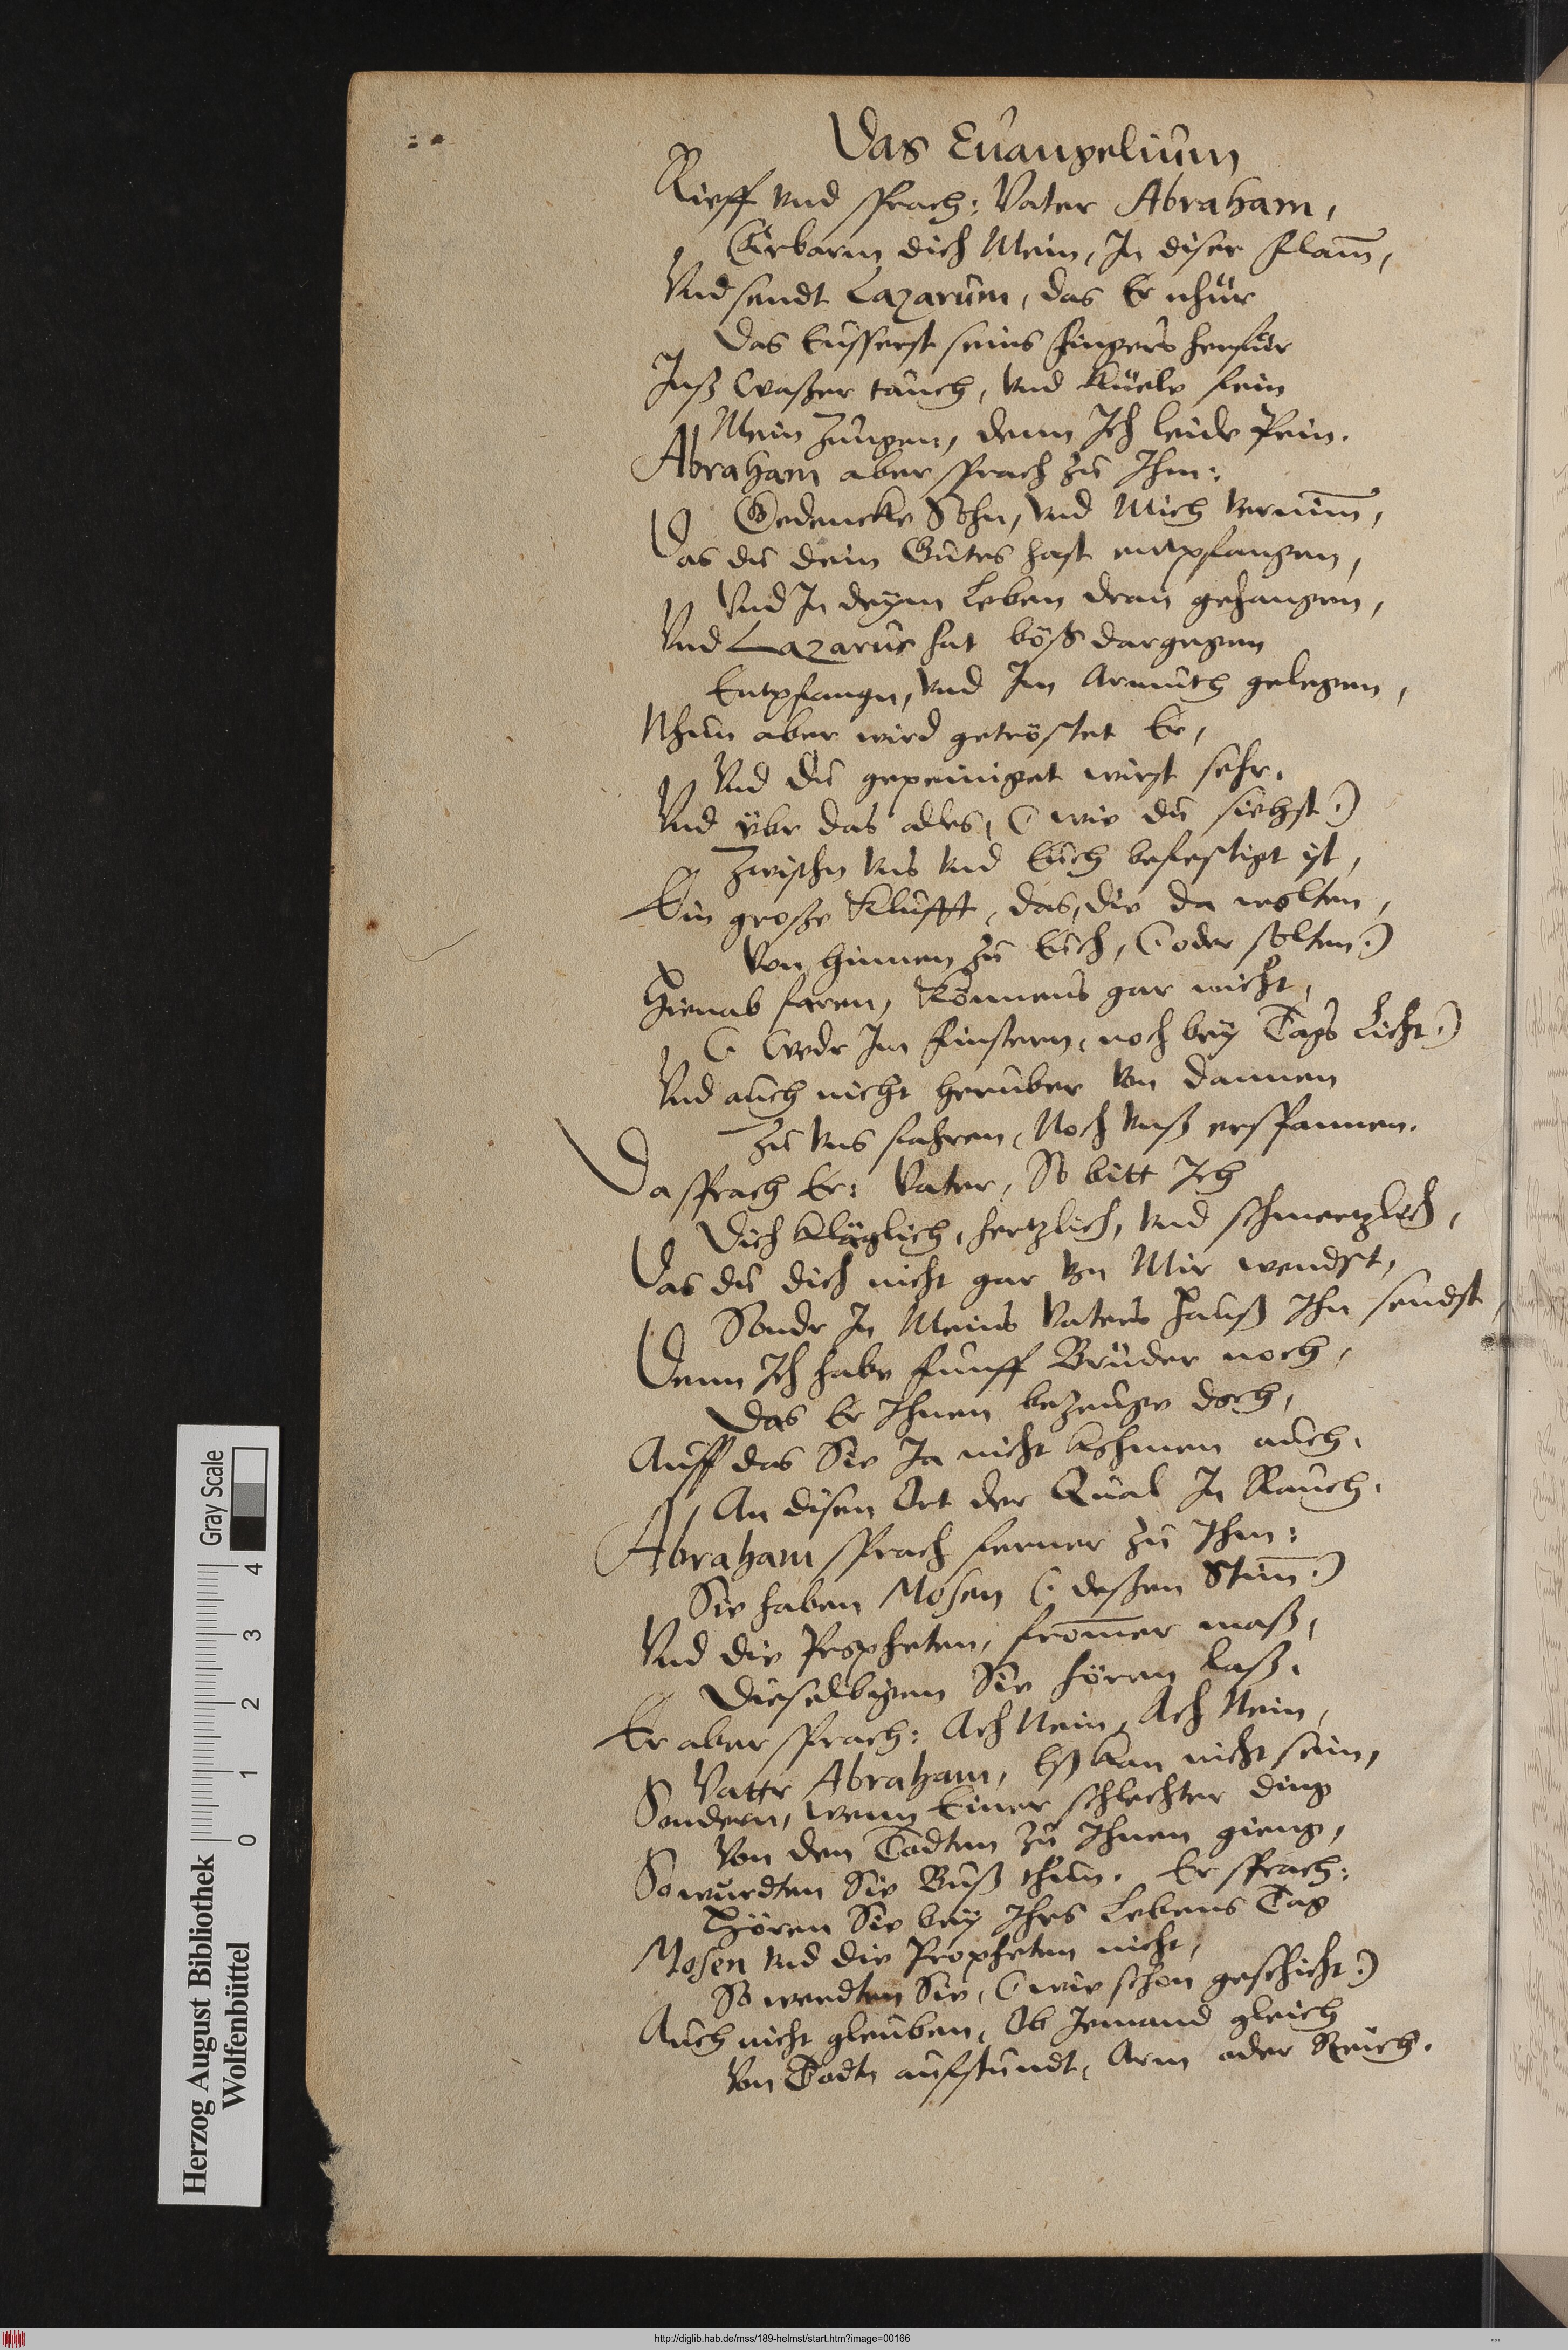 Das Euangelium
Rieff vnd sprach: Vater Abraham,
Erbarm dich Mein, In diser Flam̅,
Vnd sendt Lazarum, das Er nhür
Das Eusserst seins Fingers herfür
Inß Waßer tauch, vnd küele fein
Mein Zungen, denn Ich leide Pein.
Abraham aber sprach zu Ihm:
Gedencke Sohn, vnd Mich vernim̅,
Das du dein Gutes hast entpfangen,
Vnd In deym Leben dran gehangen,
Vnd Lazarus hat böß dargegen
Entpfangn, vnd Im Armuth gelegen,
Nhun aber wird getröstet Er,
Vnd du gepeiniget wirst sehr.
Vnd über das alles, (: wie du siehst :)
Zwischn vns vnd Euch befestigt ist,
Ein große Klufft, das, die da wolten,
Von hinnen zu Euch, (: oder solten :)
Hienab faren, Könnens gar nicht,
(: Wedr Im Finstern, noch bey Tags Licht :)
Vnd auch nicht heruber von dannen
Zu vns fahren, Noch vnß erspannen.
Da sprach Er: Vater, So bitt Ich
Dich kläglich, hertzlich, vnd schmertzlich,
Das du dich nicht gar von Mir wendst,
Sondr In Meins Vaters Hauß Ihn sendst,
Denn Ich habe funff Brüder noch,
Das Er Ihnen bezeuge doch,
Auff das Sie Ja nicht kohmen auch,
An disen Ort der Qual In Rauch.
Abraham sprach ferner zu Ihm:
Sie haben Mosen (: deßen Stim̅ :)
Vnd die Propheten, from̅er maß,
Dieselbigen Sie hören laß.
Er aber sprach: Ach Nein, Ach Nein,
Vattr Abraham, Eß kan nicht sein,
Sondern, wenn Einer schlechter ding
Von den Todten zu Ihnen gieng,
So wurdten Sie Buß thun. Er sprach:
Hören Sie bey Ihrs Lebens Tag
Mosen vnd die Propheten nicht,
So werdten Sie, (: wie schon geschicht :)
Auch nicht gleuben, Ob Jemand gleich
Von Todtn aufstundt, Arm oder Reich.
Herzog August Bibliothek
Wolfenbüttel
0 1 2 3 4
Gray Scale
http://diglib.hab.de/mss/189-helmst/start.htm?image=00166